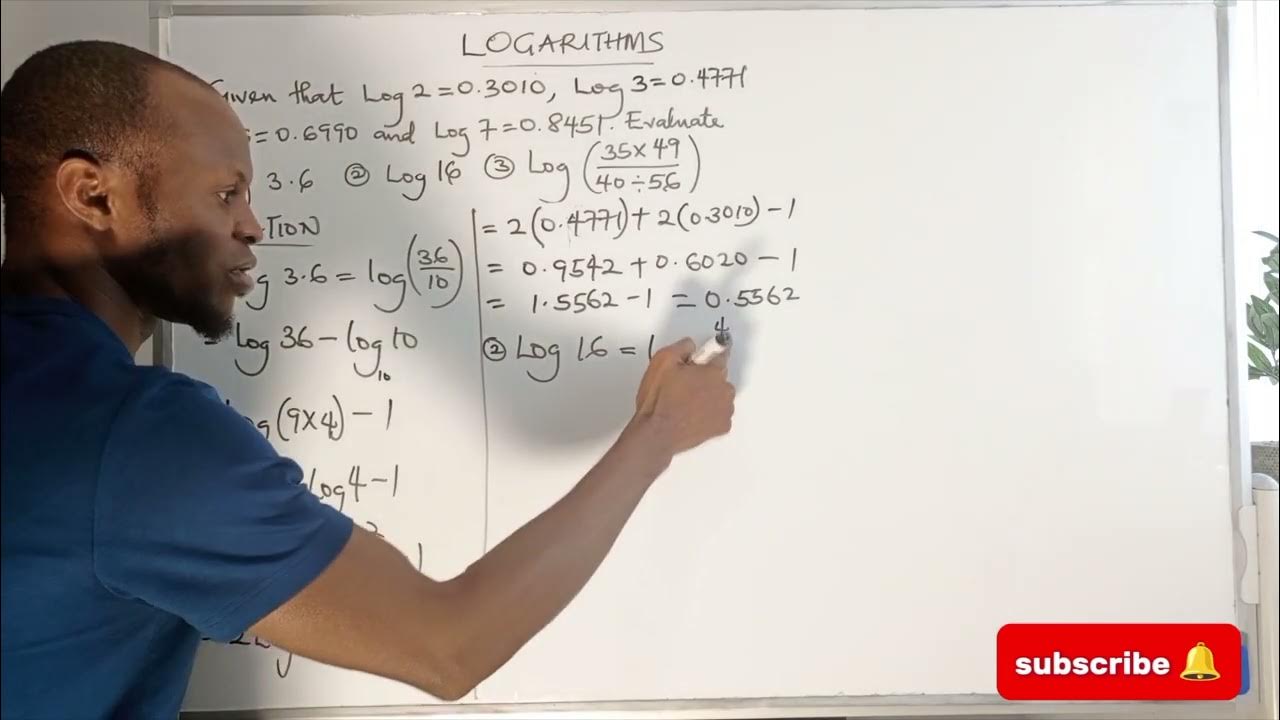 LOGARITHMS
Given that Log 2 = 0.3010, Log 3 = 0.4771
= 0.6990 and Log 7 = 0.8451. Evaluate
3.6 ② Log 16 ③ Log (35 × 49 / 40 ÷ 56)
TION
g 3.6 = log (36/10)
= log 36 - log 10
10
og (9×4) - 1
log 4 - 1
2
1
= 2L g
= 2(0.4771) + 2(0.3010) - 1
= 0.9542 + 0.6020 - 1
= 1.5562 - 1 = 0.5562
② Log 16 = l 4
subscribe